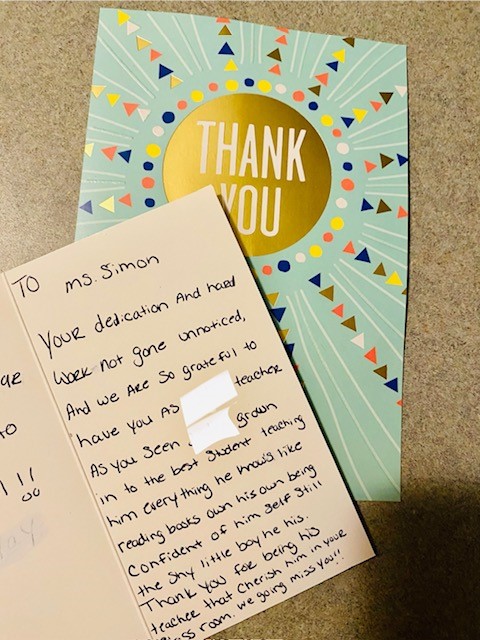 THANK
YOU
TO ms. Simon
Your dedication And hard
work not gone unnoticed,
And we Are so grateful to
have you As teacher
As you seen grown
in to the best student teaching
him everything he know's like
reading books own his own being
Confident of him self still
the shy little boy he his.
Thank you for being his
teacher that Cherish him in your
Class room. we going miss you!!
to
!!